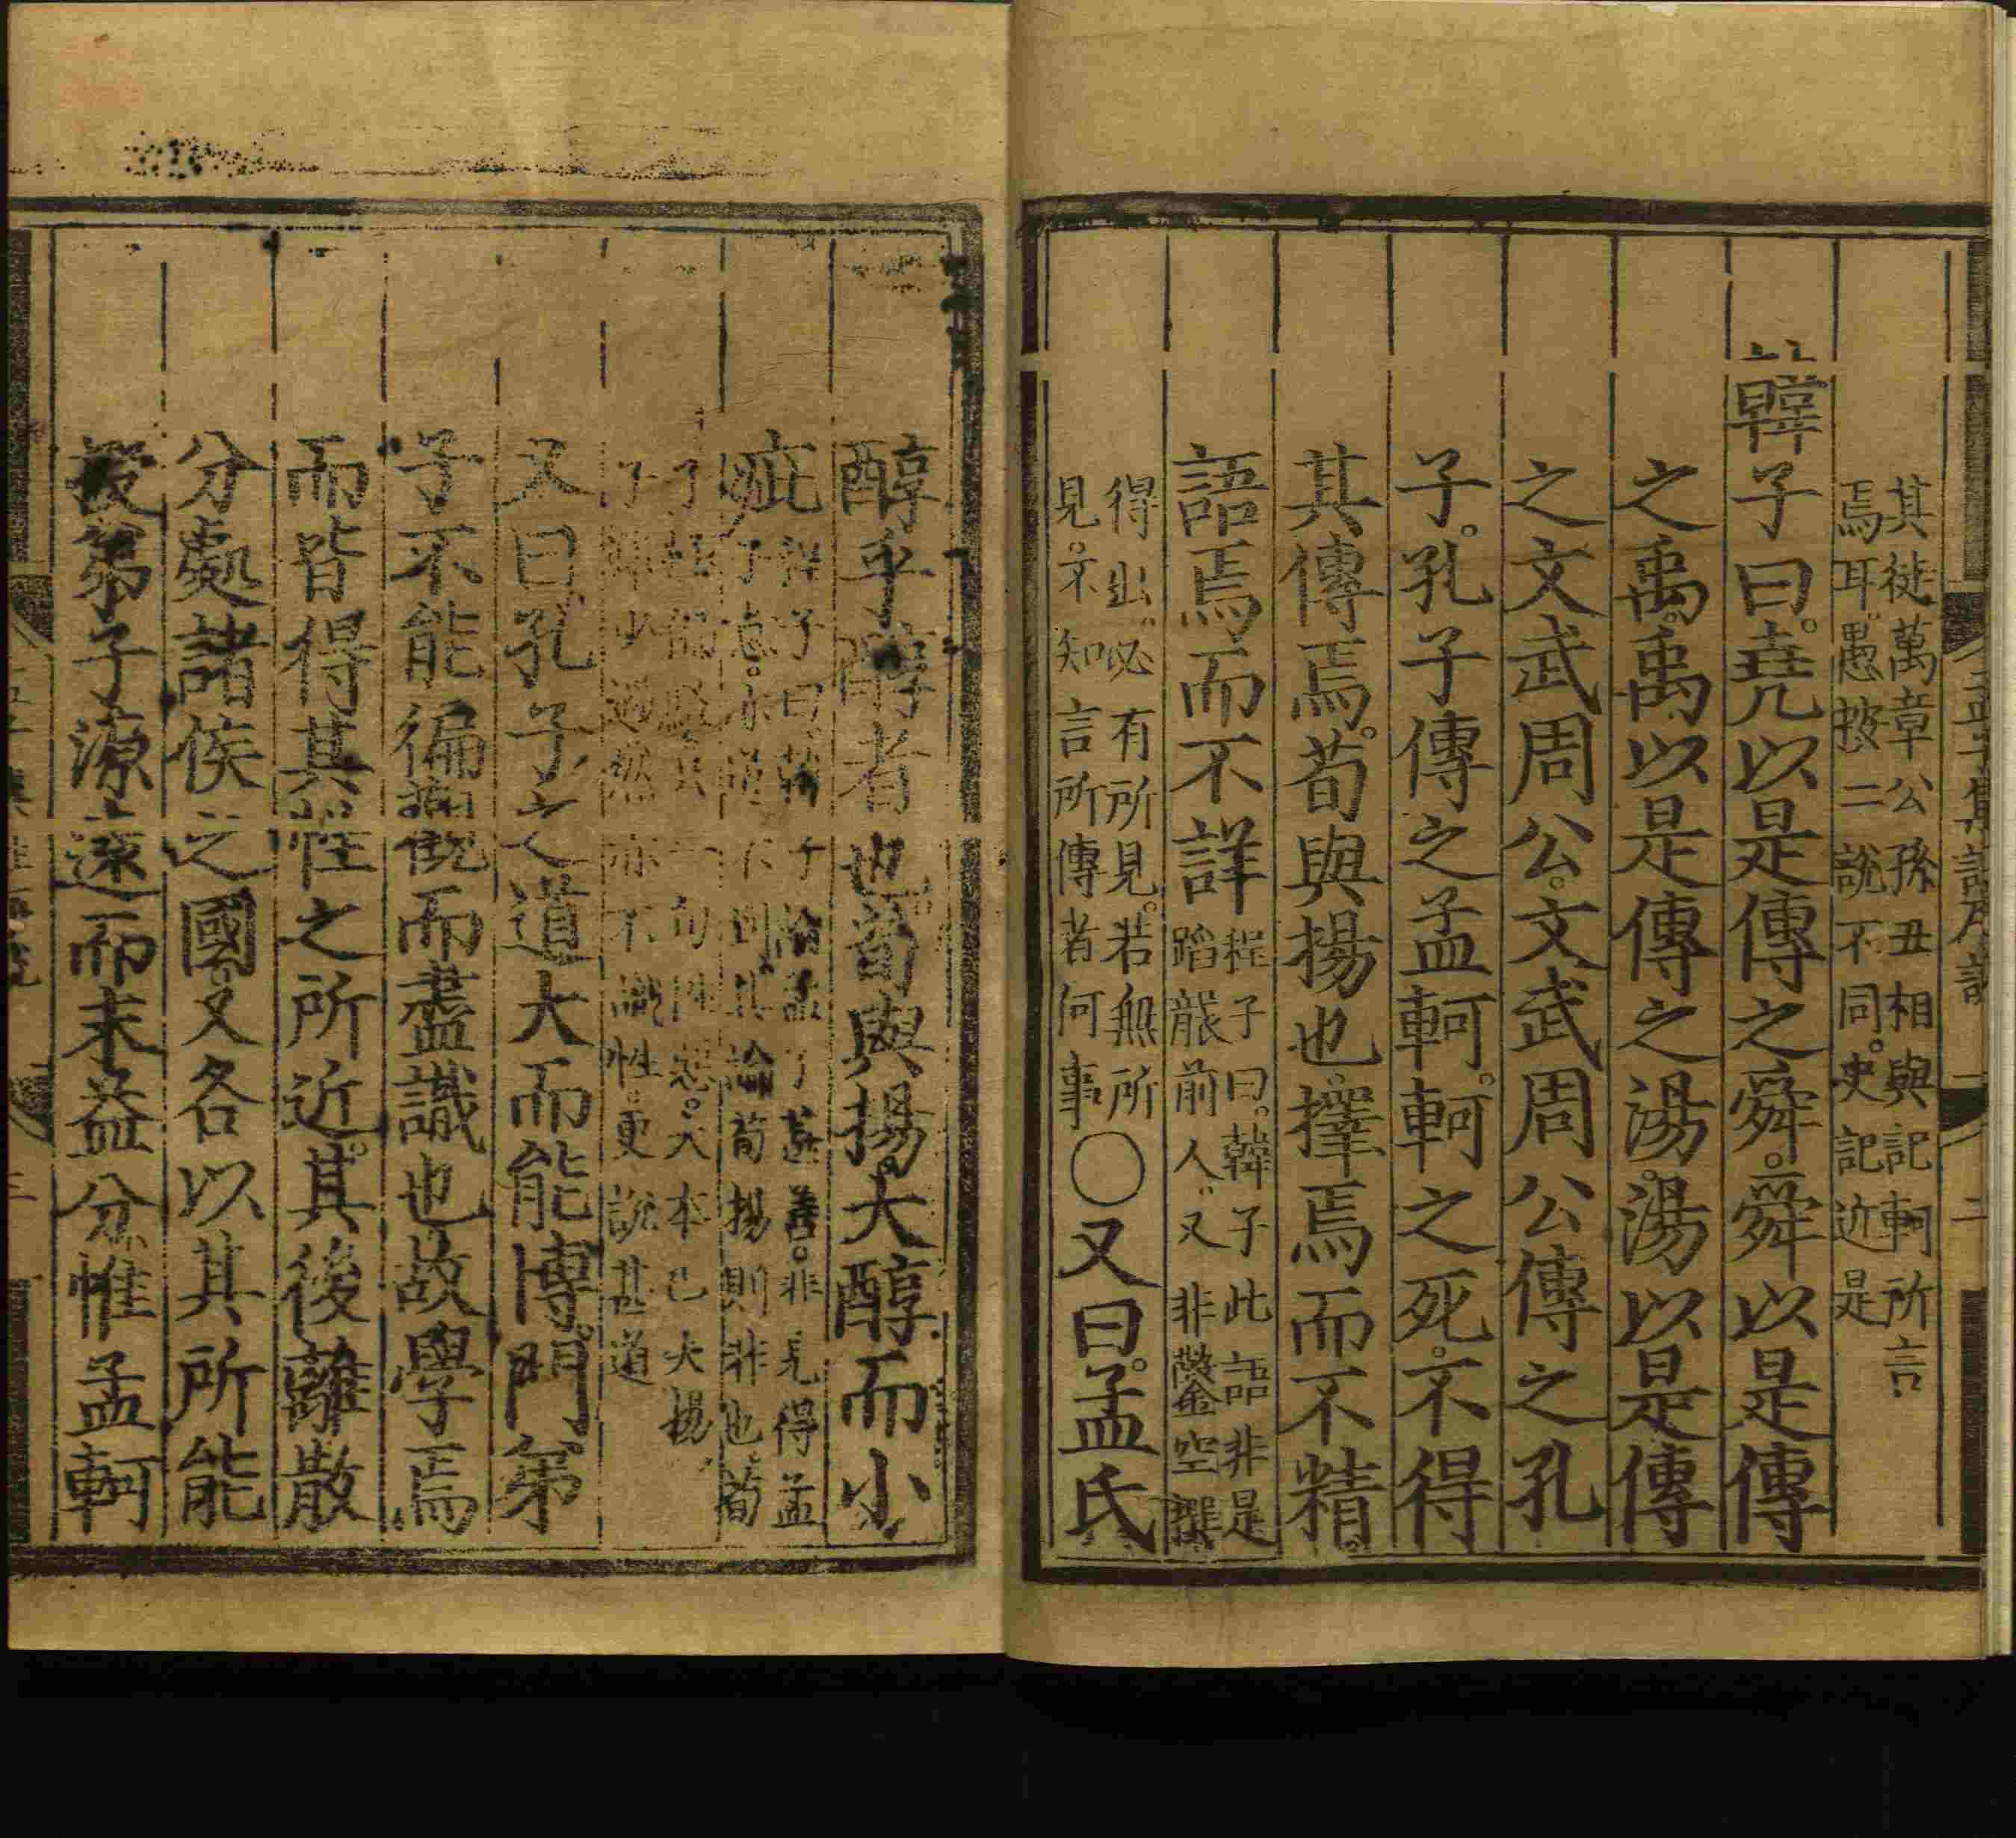 其徒萬章公孫丑相與記軻所言
焉耳。愚按二說不同。史記近是
韓子曰。堯以是傳之舜。舜以是傳
之禹。禹以是傳之湯。湯以是傳
之文武周公。文武周公傳之孔
子。孔子傳之孟軻。軻之死。不得
其傳焉。荀與揚也。擇焉而不精。
語焉而不詳
程子曰。韓子此語非是
蹈襲前人。又非鑿空撰
得出。必有所見。若無所
見。不知言所傳者何事
○又曰。孟氏
醇乎醇者也。荀與揚。大醇而小
疵
程子曰。韓子論孟子甚善。非見得孟
子意。亦道不到。其論荀揚則非也。荀
子極偏駁。只一句性惡。大本已失。揚
子雖少過。然亦不識性。更說甚道
又曰。孔子之道大而能博。門弟
子不能徧觀而盡識也。故學焉
而皆得其性之所近。其後離散
分處諸侯之國。又各以其所能
授弟子。源遠而末益分。惟孟軻